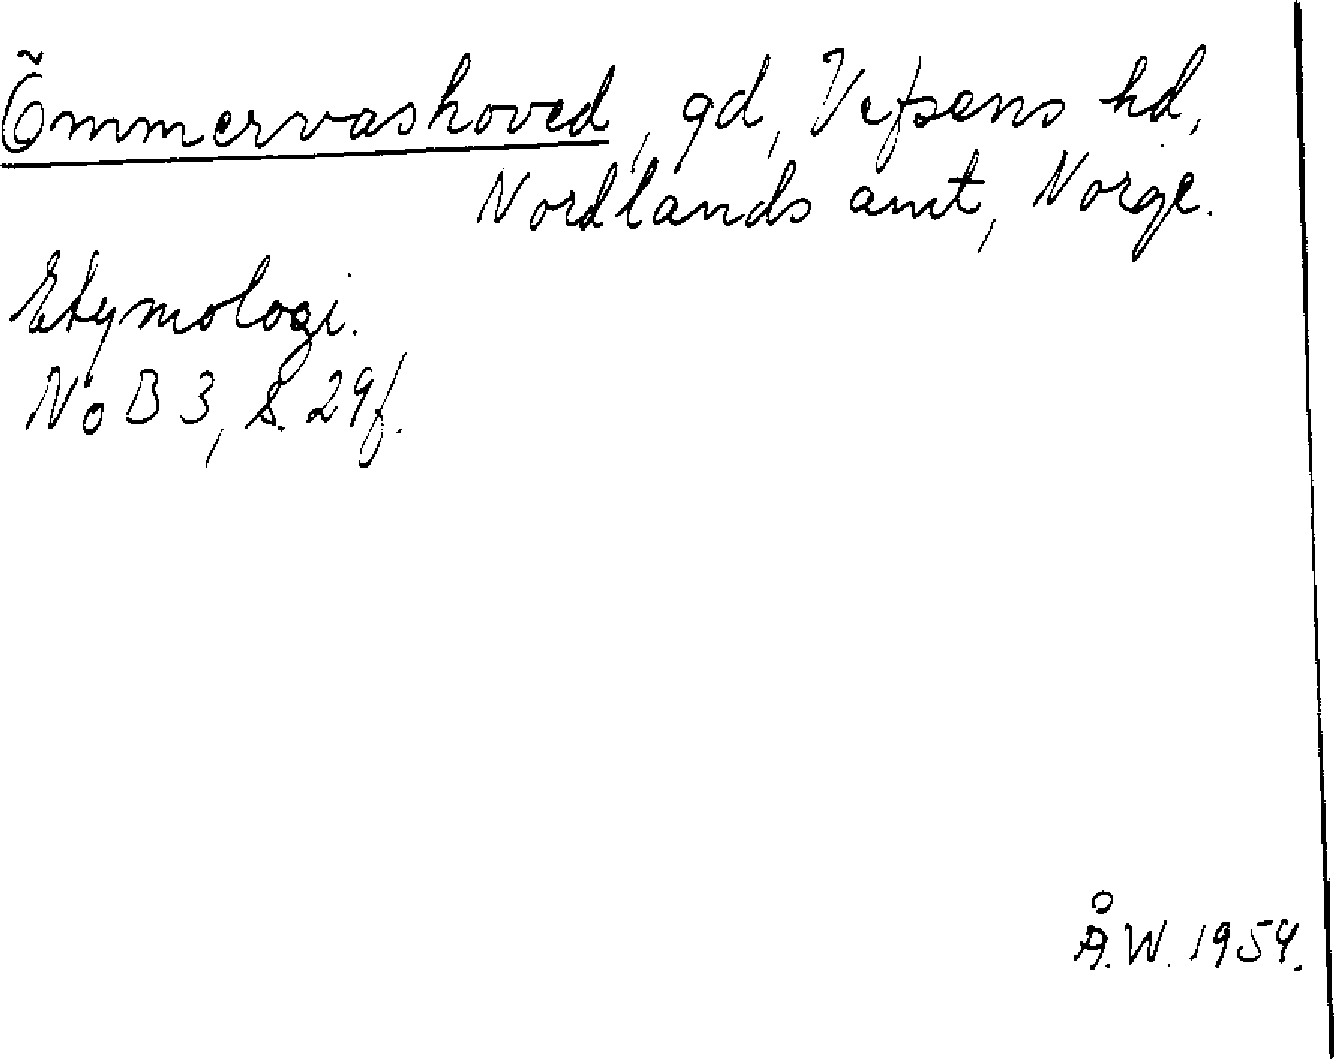 Õmmervashoved, gd, Vefsens hd,
Nordlands amt, Norge.
Etymologi.
NoB 3, s. 29f.
Å.W. 1954.